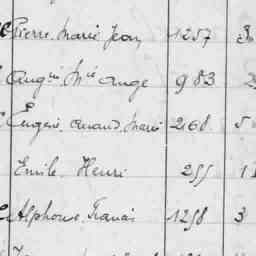 Pierre Marie Jean 1257
Ange 983
Eugène Marie 268 5
Emile Henri 255 1
Alphonse Francis 1258 3